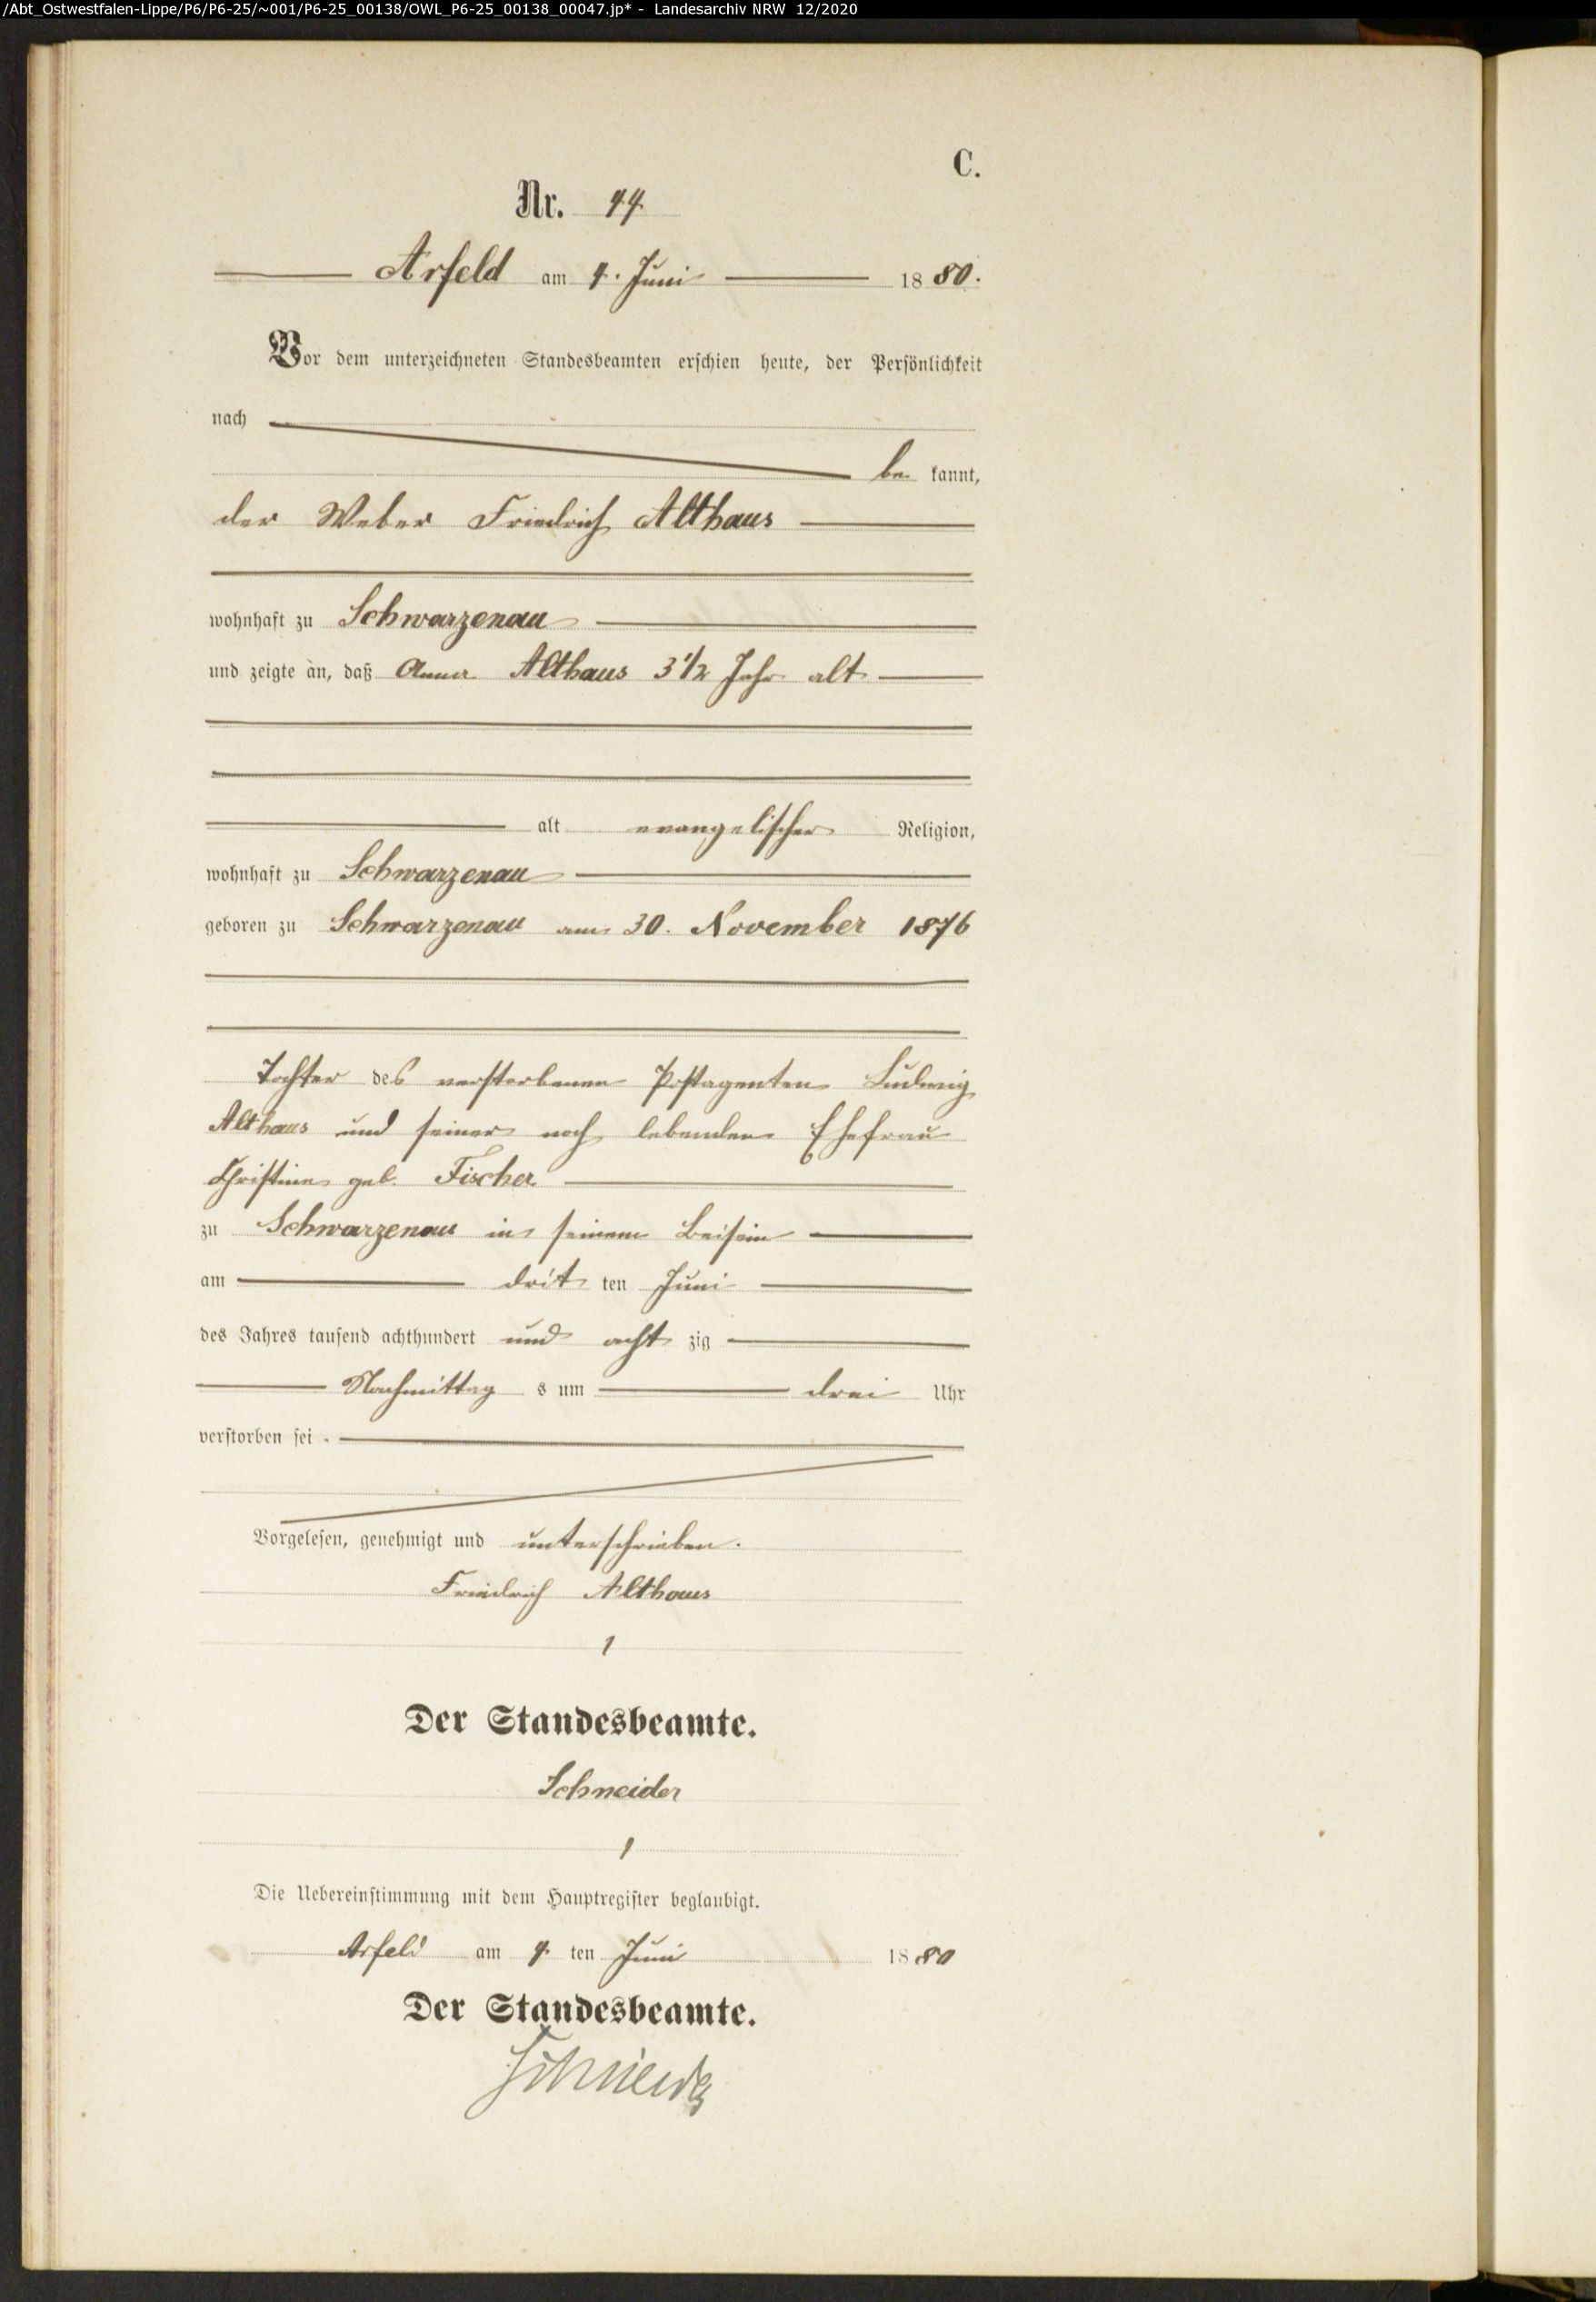 /Abt_Ostwestfalen-Lippe/P6/P6-25/~001/P6-25_00138/OWL_P6-25_00138_00047.jp* - Landesarchiv NRW 12/2020
C.
Nr. 44.
Arfeld am 4. Juni 1880.
Vor dem unterzeichneten Standesbeamten erschien heute, der Persönlichkeit
nach
be kannt,
der Weber Friedrich Althaus
wohnhaft zu Schwarzenau
und zeigte an, daß Anna Althaus 3 1/2 Jahr alt
alt evangelischer Religion,
wohnhaft zu Schwarzenau
geboren zu Schwarzenau am 30. November 1876
Tochter des verstorbenen Postagenten Ludwig
Althaus und seiner noch lebenden Ehefrau
Christine geb. Fischer
zu Schwarzenau in seinem Beisein
am drit ten Juni
des Jahres tausend achthundert und acht zig
Nachmittag s um drei Uhr
verstorben sei.
Vorgelesen, genehmigt und unterschrieben.
Friedrich Althaus
Der Standesbeamte.
Schneider
Die Uebereinstimmung mit dem Hauptregister beglaubigt.
Arfeld am 4. ten Juni 1880
Der Standesbeamte.
Schneider